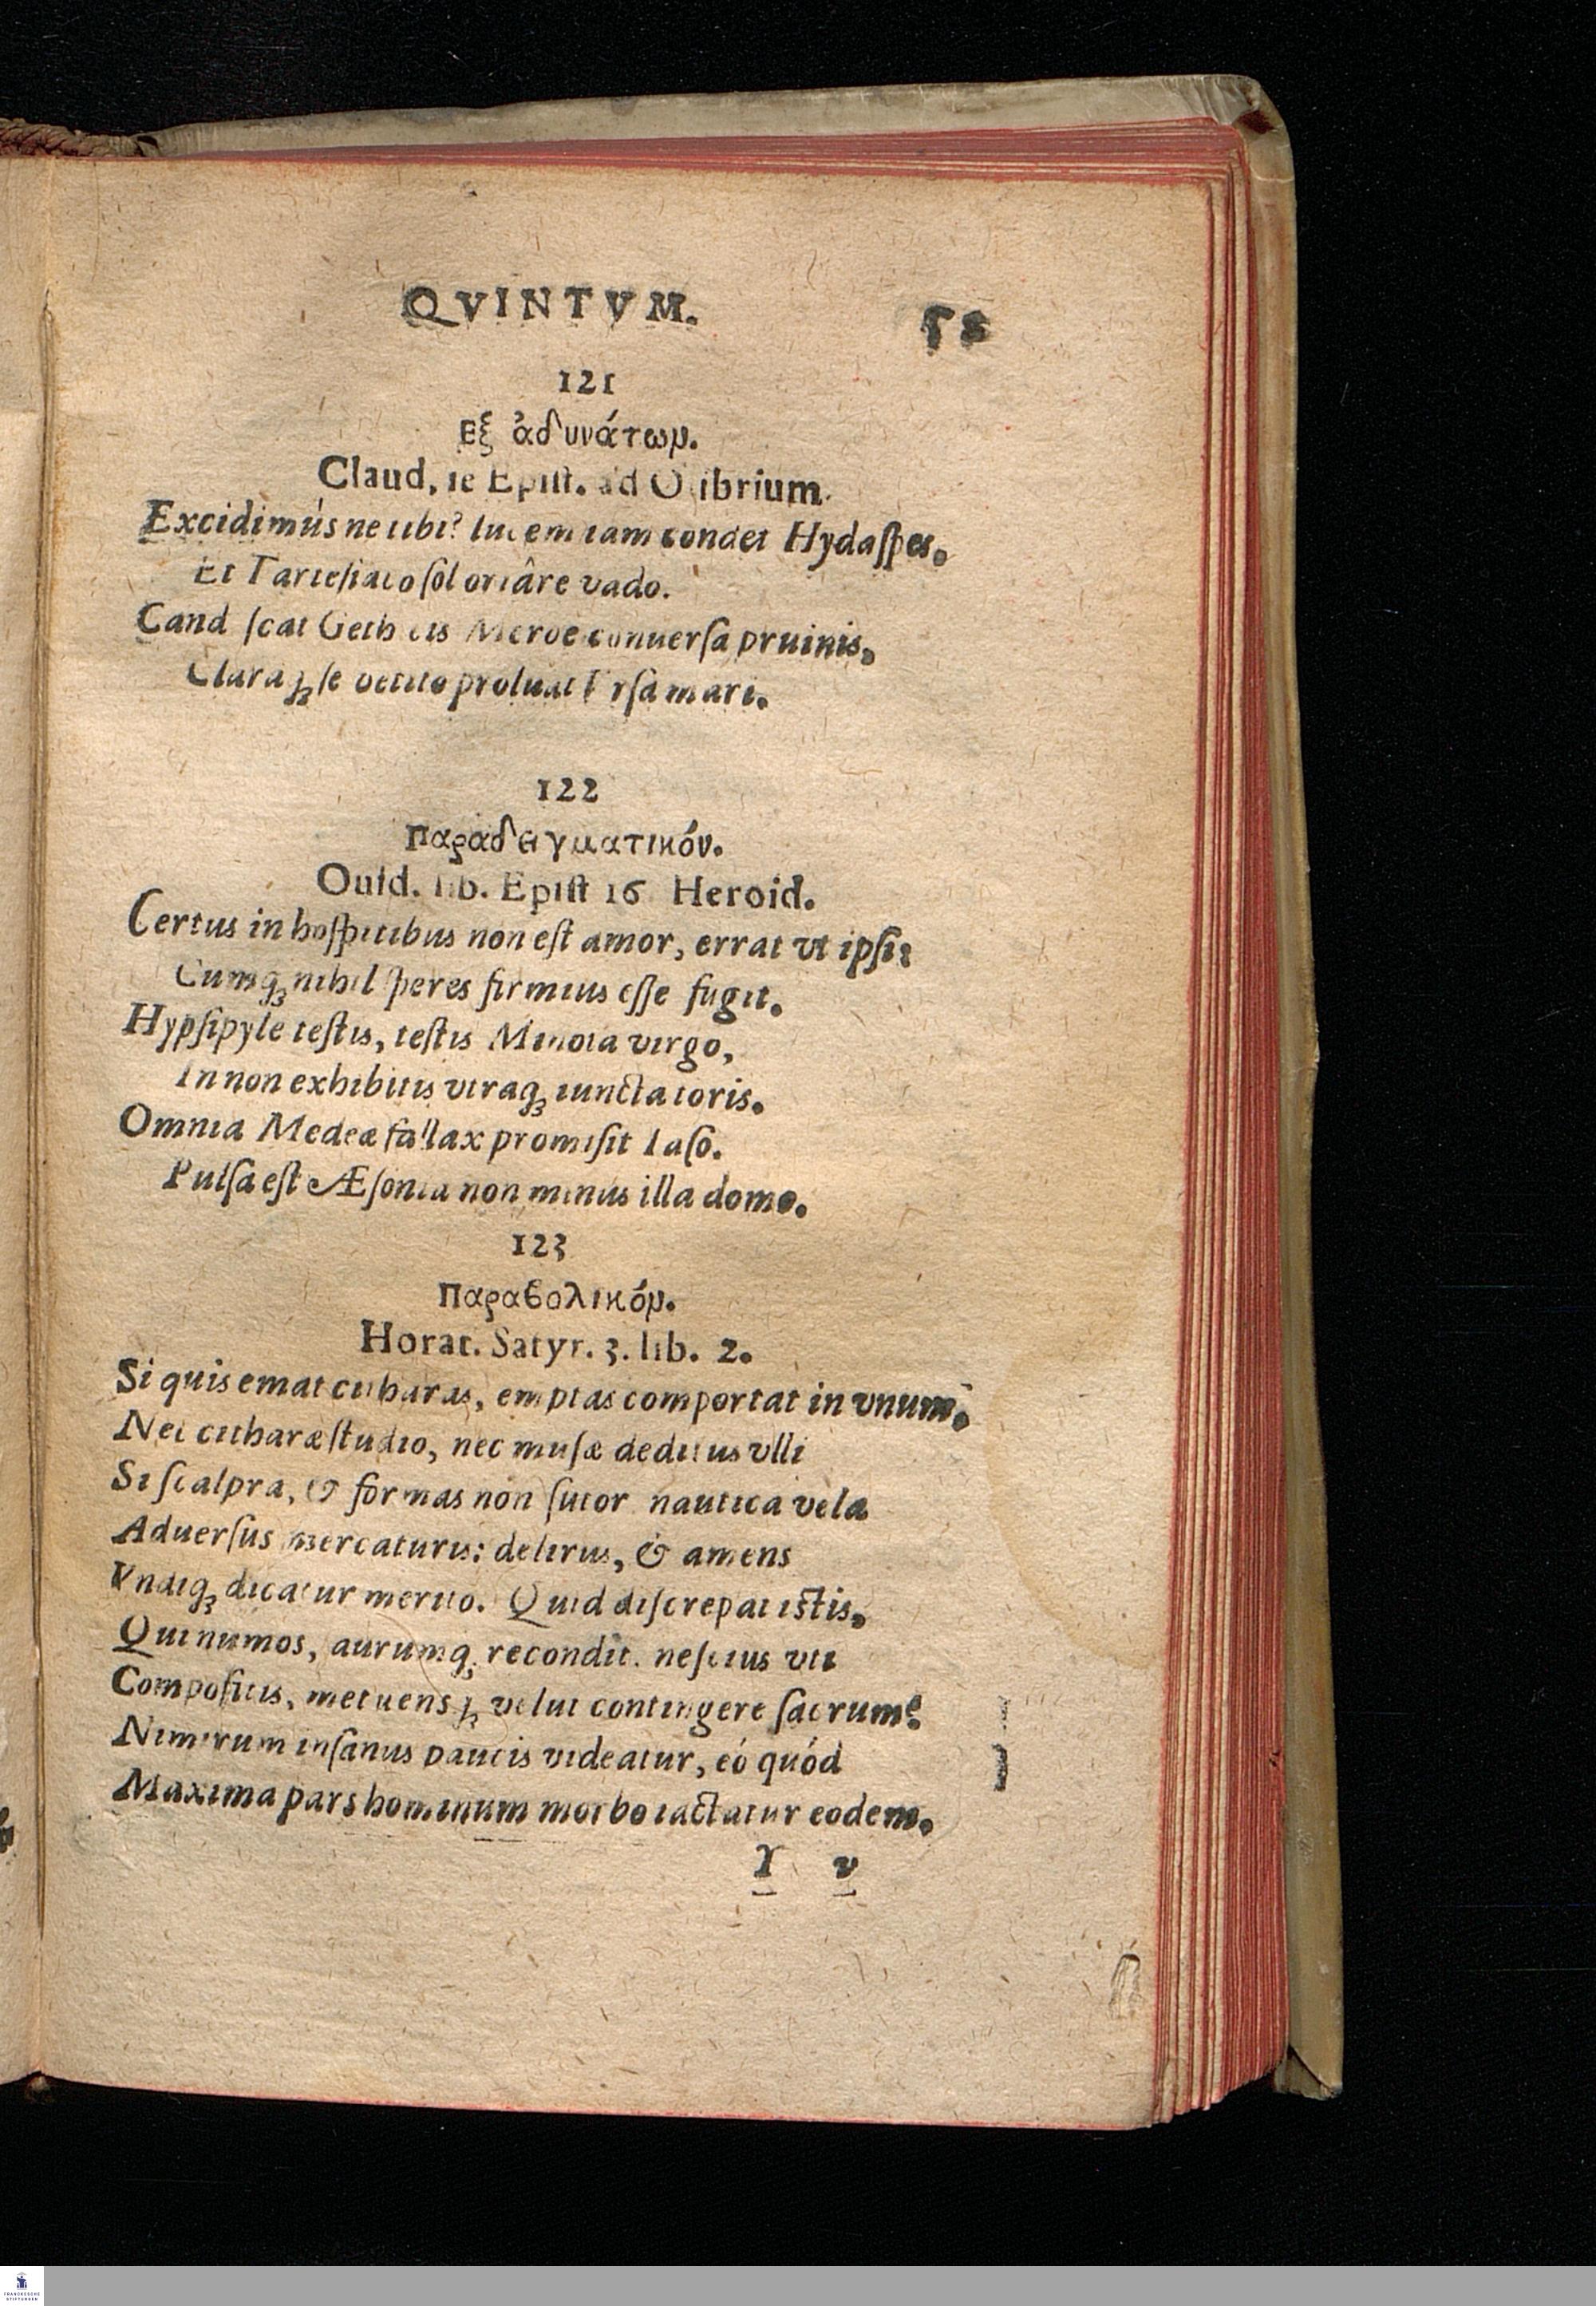 QVINTVM. 58
121
Εξ ἀδυνάτων.
Claud. ie Epist. ad Olibrium.
Excidimúsne tibi? lucem iam condet Hydaſpes.
Et Tarteſiaco ſol oriâre vado.
Candeſcat Geticis Meroe conuerſa pruinis.
Claraqꝫ ſe vetito proluat Vrſa mari.
122
Παραδειγματικόν.
Ouid. lib. Epiſt 16 Heroid.
Certus in hoſpitibus non eſt amor, errat vt ipſi:
Cumqꝫ nihil ſperes firmius eſſe fugit.
Hypſipyle teſtis, teſtis Minoia virgo,
In non exhibitis vtraqꝫ iuncta toris.
Omnia Medeæ fallax promiſit Iaſō.
Pulſa eſt Æſonia non minùs illa domo.
123
Παραβολικόν.
Horat. Satyr. 3. lib. 2.
Si quis emat citharas, emptas comportat in vnum.
Nec citharæ ſtudio, nec muſæ deditus vlli
Si ſcalpra, & formas non ſutor nautica vela
Aduerſus mercaturis: delirus, & amens
Vndiqꝫ dicatur merito. Quid diſcrepat iſtis,
Qui numos, aurumqꝫ recondit. neſcius vti
Compoſitis, metuensqꝫ velut contingere ſacrum?
Nimirum inſanus paucis videatur, eò quòd
Maxima pars hominum morbo iactatur eodem.
Y v
FRANCKESCHE
STIFTUNGEN